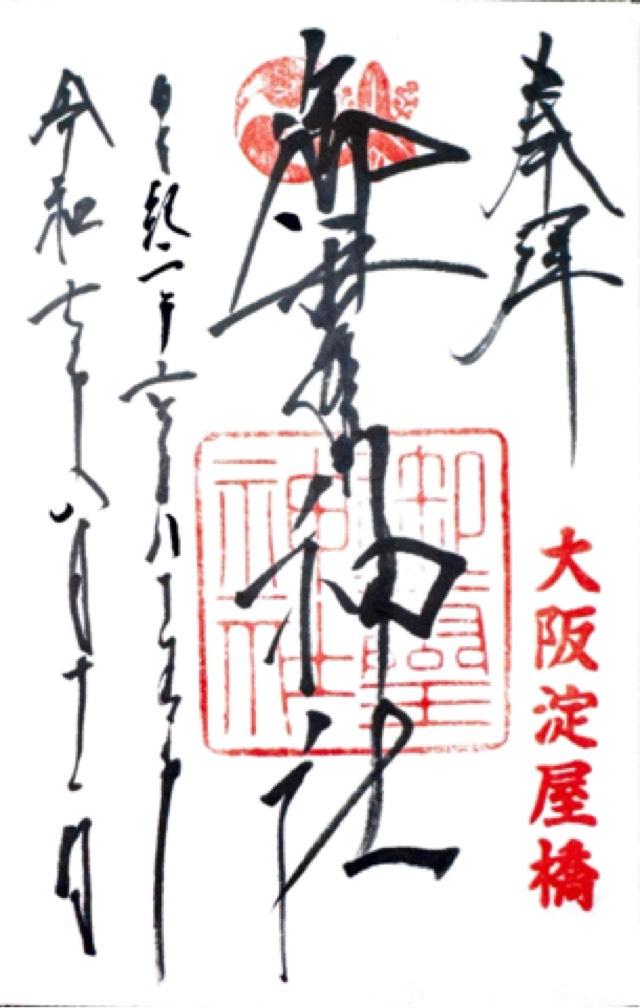 奉拝
大阪淀屋橋
御霊神社
御霊神社
皇紀二千六百八十五年
令和七年八月十一日